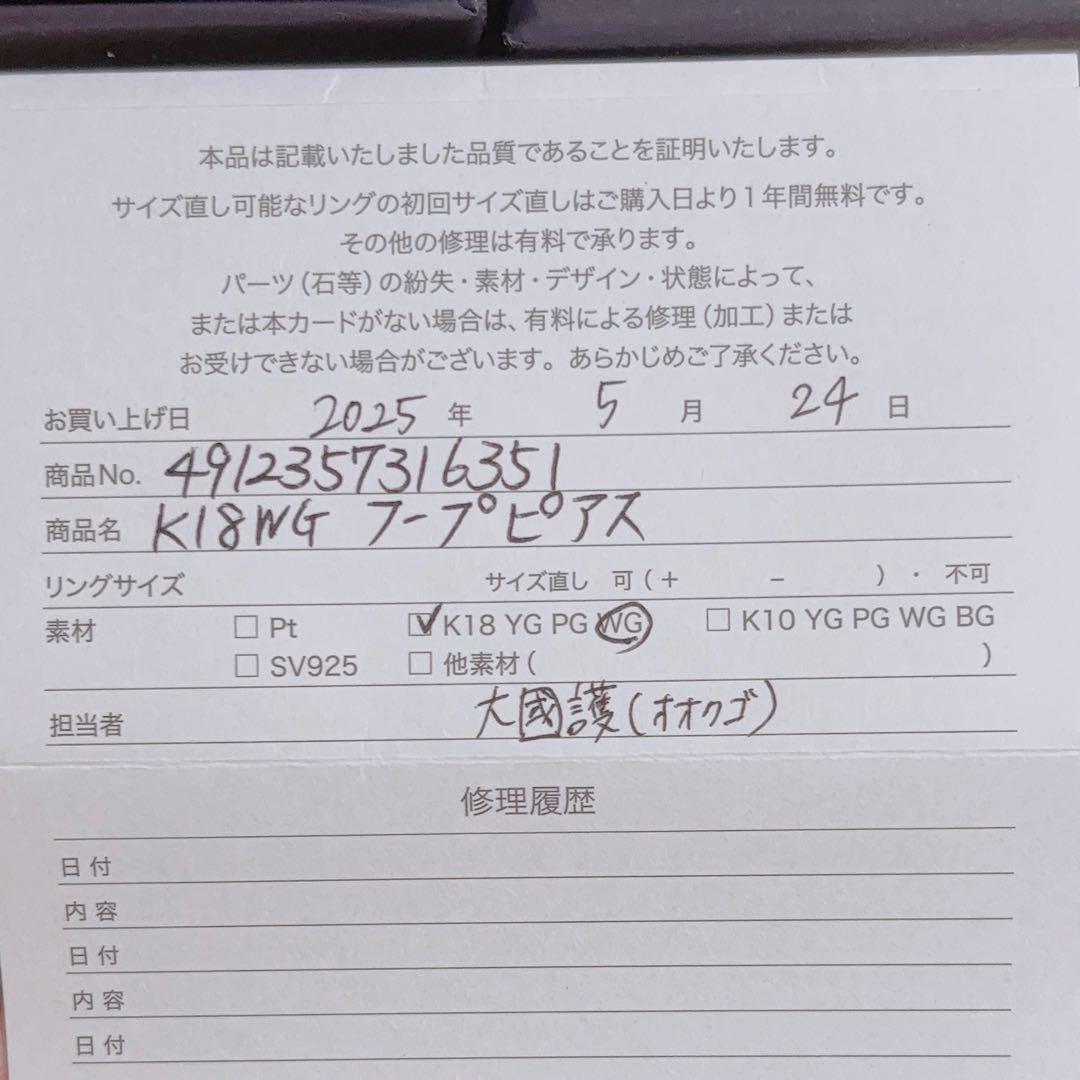 本品は記載いたしました品質であることを証明いたします。
サイズ直し可能なリングの初回サイズ直しはご購入日より1年間無料です。
その他の修理は有料で承ります。
パーツ(石等)の紛失・素材・デザイン・状態によって、
または本カードがない場合は、有料による修理(加工)または
お受けできない場合がございます。あらかじめご了承ください。
お買い上げ日 2025 年 5 月 24 日
商品No. 4912357316351
商品名 K18WG フープピアス
リングサイズ サイズ直し 可(+ − )・不可
素材 □ Pt ☑ K18 YG PG WG □ K10 YG PG WG BG
□ SV925 □ 他素材( )
担当者 大國護(オオクゴ)
修理履歴
日付
内容
日付
内容
日付